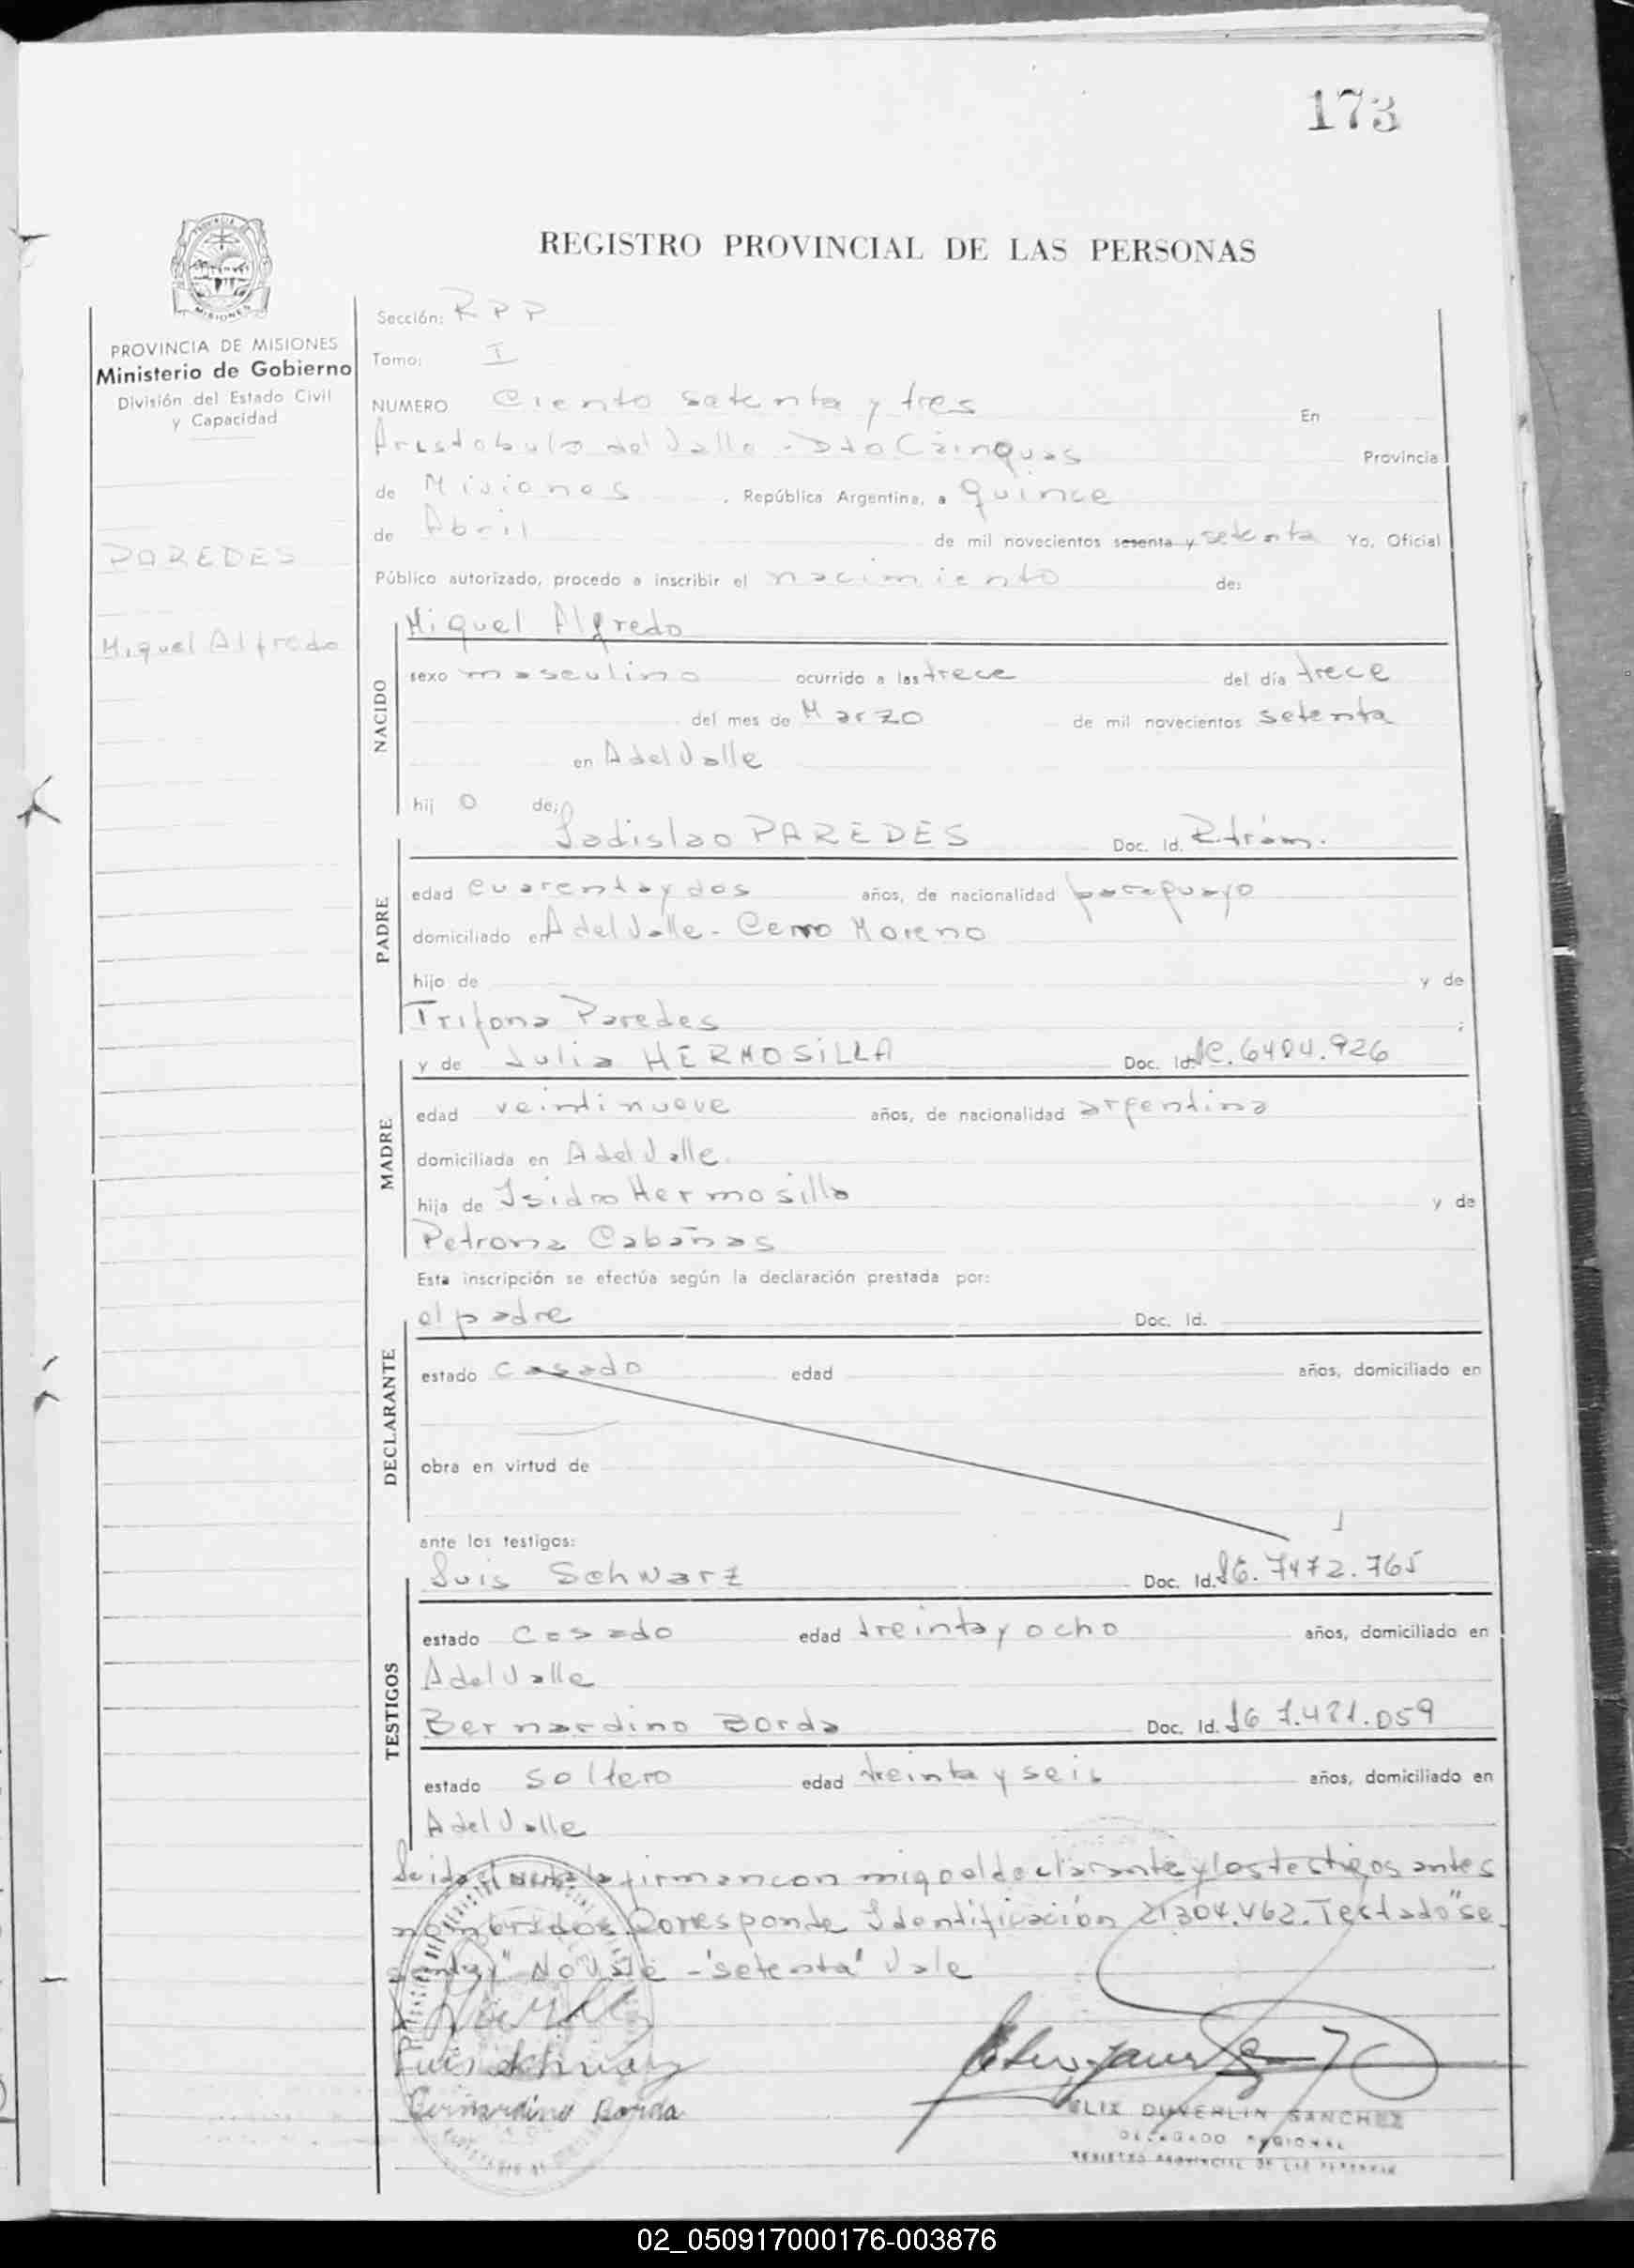 173
REGISTRO PROVINCIAL DE LAS PERSONAS
PROVINCIA DE MISIONES
Ministerio de Gobierno
División del Estado Civil
y Capacidad
PAREDES
Miguel Alfredo
Sección: RPP
Tomo: I
NUMERO Ciento setenta y tres En
Aristobulo del Valle - Dto Cainguas Provincia
de Misiones , República Argentina, a quince
de Abril de mil novecientos sesenta y setenta Yo, Oficial
Público autorizado, procedo a inscribir el nacimiento de:
NACIDO
Miguel Alfredo
sexo masculino ocurrido a las trece del día trece
del mes de Marzo de mil novecientos setenta
en A del Valle
hij o de:
PADRE
Ladislao PAREDES Doc. Id. R. trám.
edad cuarenta y dos años, de nacionalidad paraguayo
domiciliado en A del Valle - Cerro Moreno
hijo de y de
Trifona Paredes ;
MADRE
y de Julia HERMOSILLA Doc. Id. 6484.926
edad veintinueve años, de nacionalidad argentina
domiciliada en A del Valle.
hija de Isidro Hermosilla y de
Petrona Cabañas
Esta inscripción se efectúa según la declaración prestada por:
DECLARANTE
el padre Doc. Id.
estado casado edad años, domiciliado en
obra en virtud de
ante los testigos:
TESTIGOS
Luis Schwarz Doc. Id. 7472.765
estado casado edad treinta y ocho años, domiciliado en
A del Valle
Bernardino Borda Doc. Id. 7.481.059
estado soltero edad treinta y seis años, domiciliado en
A del Valle
Leida el acta la firman con migo el declarante y los testigos antes
nombrados. Corresponde Identificación 21304.462. Testado "se
senta y" No Vale - "setenta" Vale
Luis Schwarz
Bernardino Borda
FELIX DUVERLIN SANCHEZ
DELEGADO REGIONAL
REGISTRO PROVINCIAL DE LAS PERSONAS
02_050917000176-003876